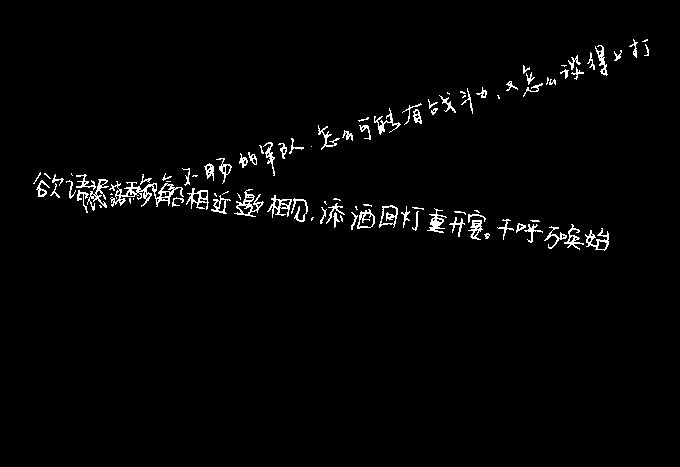 不畅的军队,怎么可能有战斗力,又怎么谈得上打
欲语船相近邀相见,添酒回灯重开宴。千呼万唤始